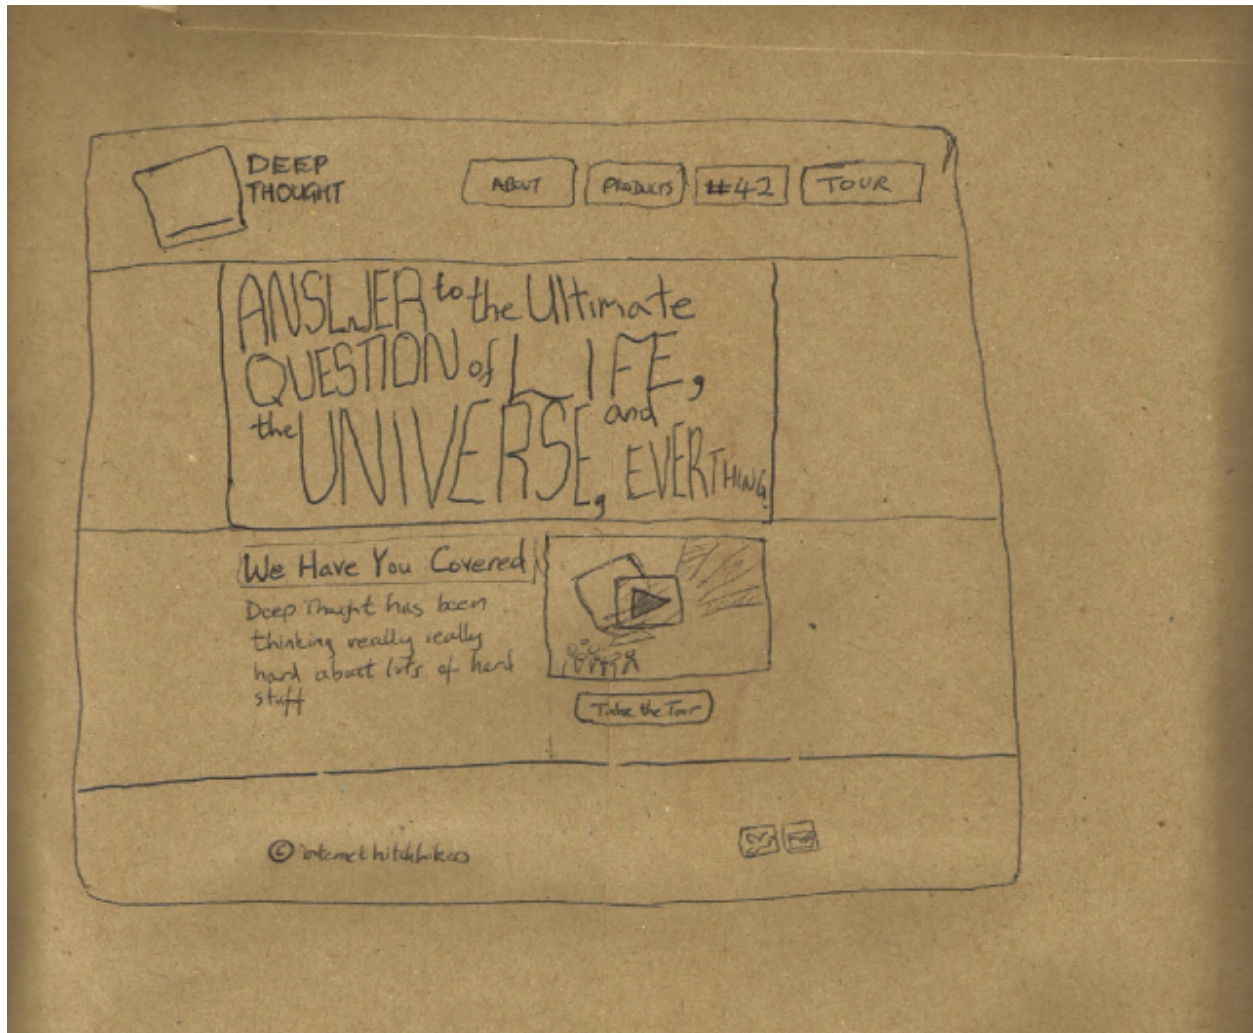 DEEP
THOUGHT
ABOUT
PRODUCTS
#42
TOUR
ANSWER to the Ultimate
QUESTION of LIFE,
the UNIVERSE, and
EVERTHING
We Have You Covered
Deep Thought has been
thinking really really
hard about lots of hard
stuff
Take the Tour
© internet hitchhikers